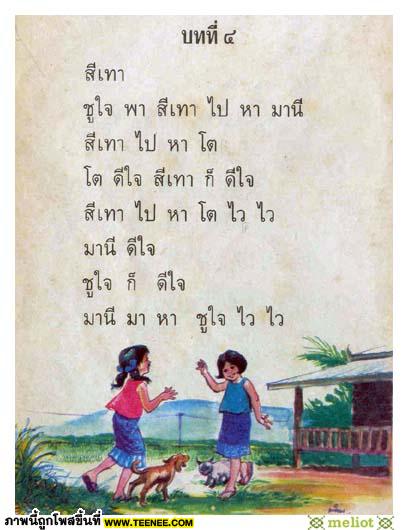 บทที่ ๔
สีเทา
ชูใจ พา สีเทา ไป หา มานี
สีเทา ไป หา โต
โต ดีใจ สีเทา ก็ ดีใจ
สีเทา ไป หา โต ไว ไว
มานี ดีใจ
ชูใจ ก็ ดีใจ
มานี มา หา ชูใจ ไว ไว
ภาพนี้ถูกโพสขึ้นที่ WWW.TEENEE.COM
meliot